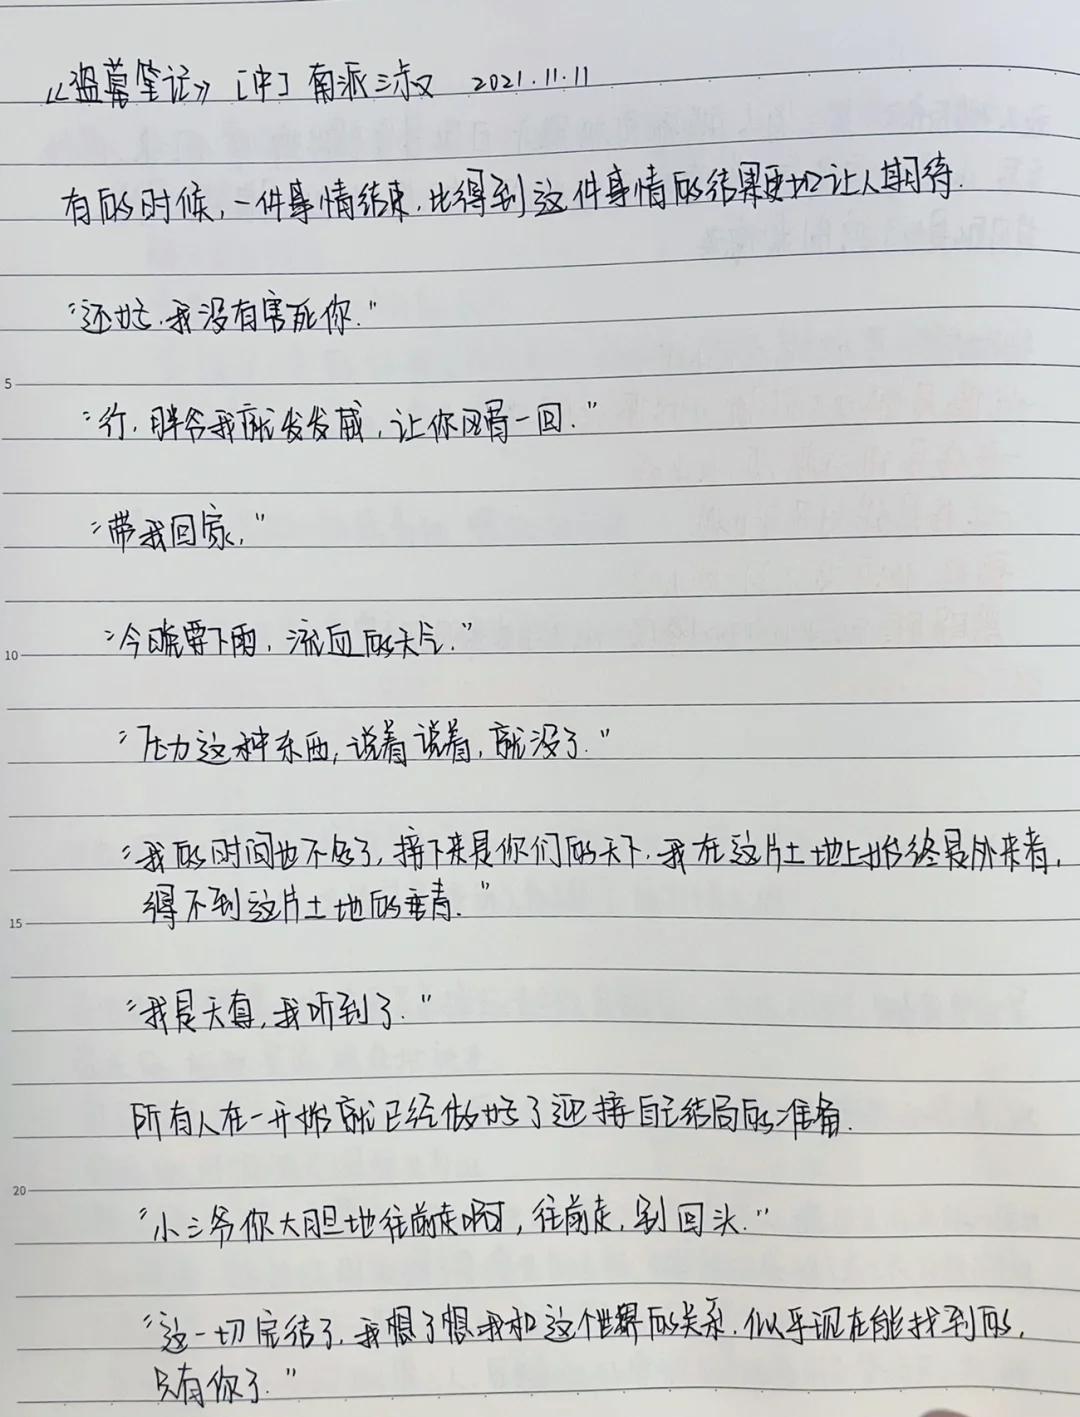 《盗墓笔记》 [中] 南派三叔 2021.11.11
有的时候，一件事情结束，比得到这件事情的结果更加让人期待．
“还好．我没有害死你．”
5
“行，胖爷我就发发威，让你风骨一回．”
“带我回家．”
“今晚要下雨，流血的天气．”
10
“压力这种东西，说着说着，就没了．”
“我的时间也不够了，接下来是你们的天下．我在这片土地上始终是外来者，
得不到这片土地的垂青．”
15
“我是天真，我听到了．”
所有人在一开始就已经做好了迎接自己结局的准备．
20
“小三爷你大胆地往前走啊，往前走，别回头．”
“这一切完结了，我想了想我和这个世界的关系．似乎现在能找到的，
只有你了．”